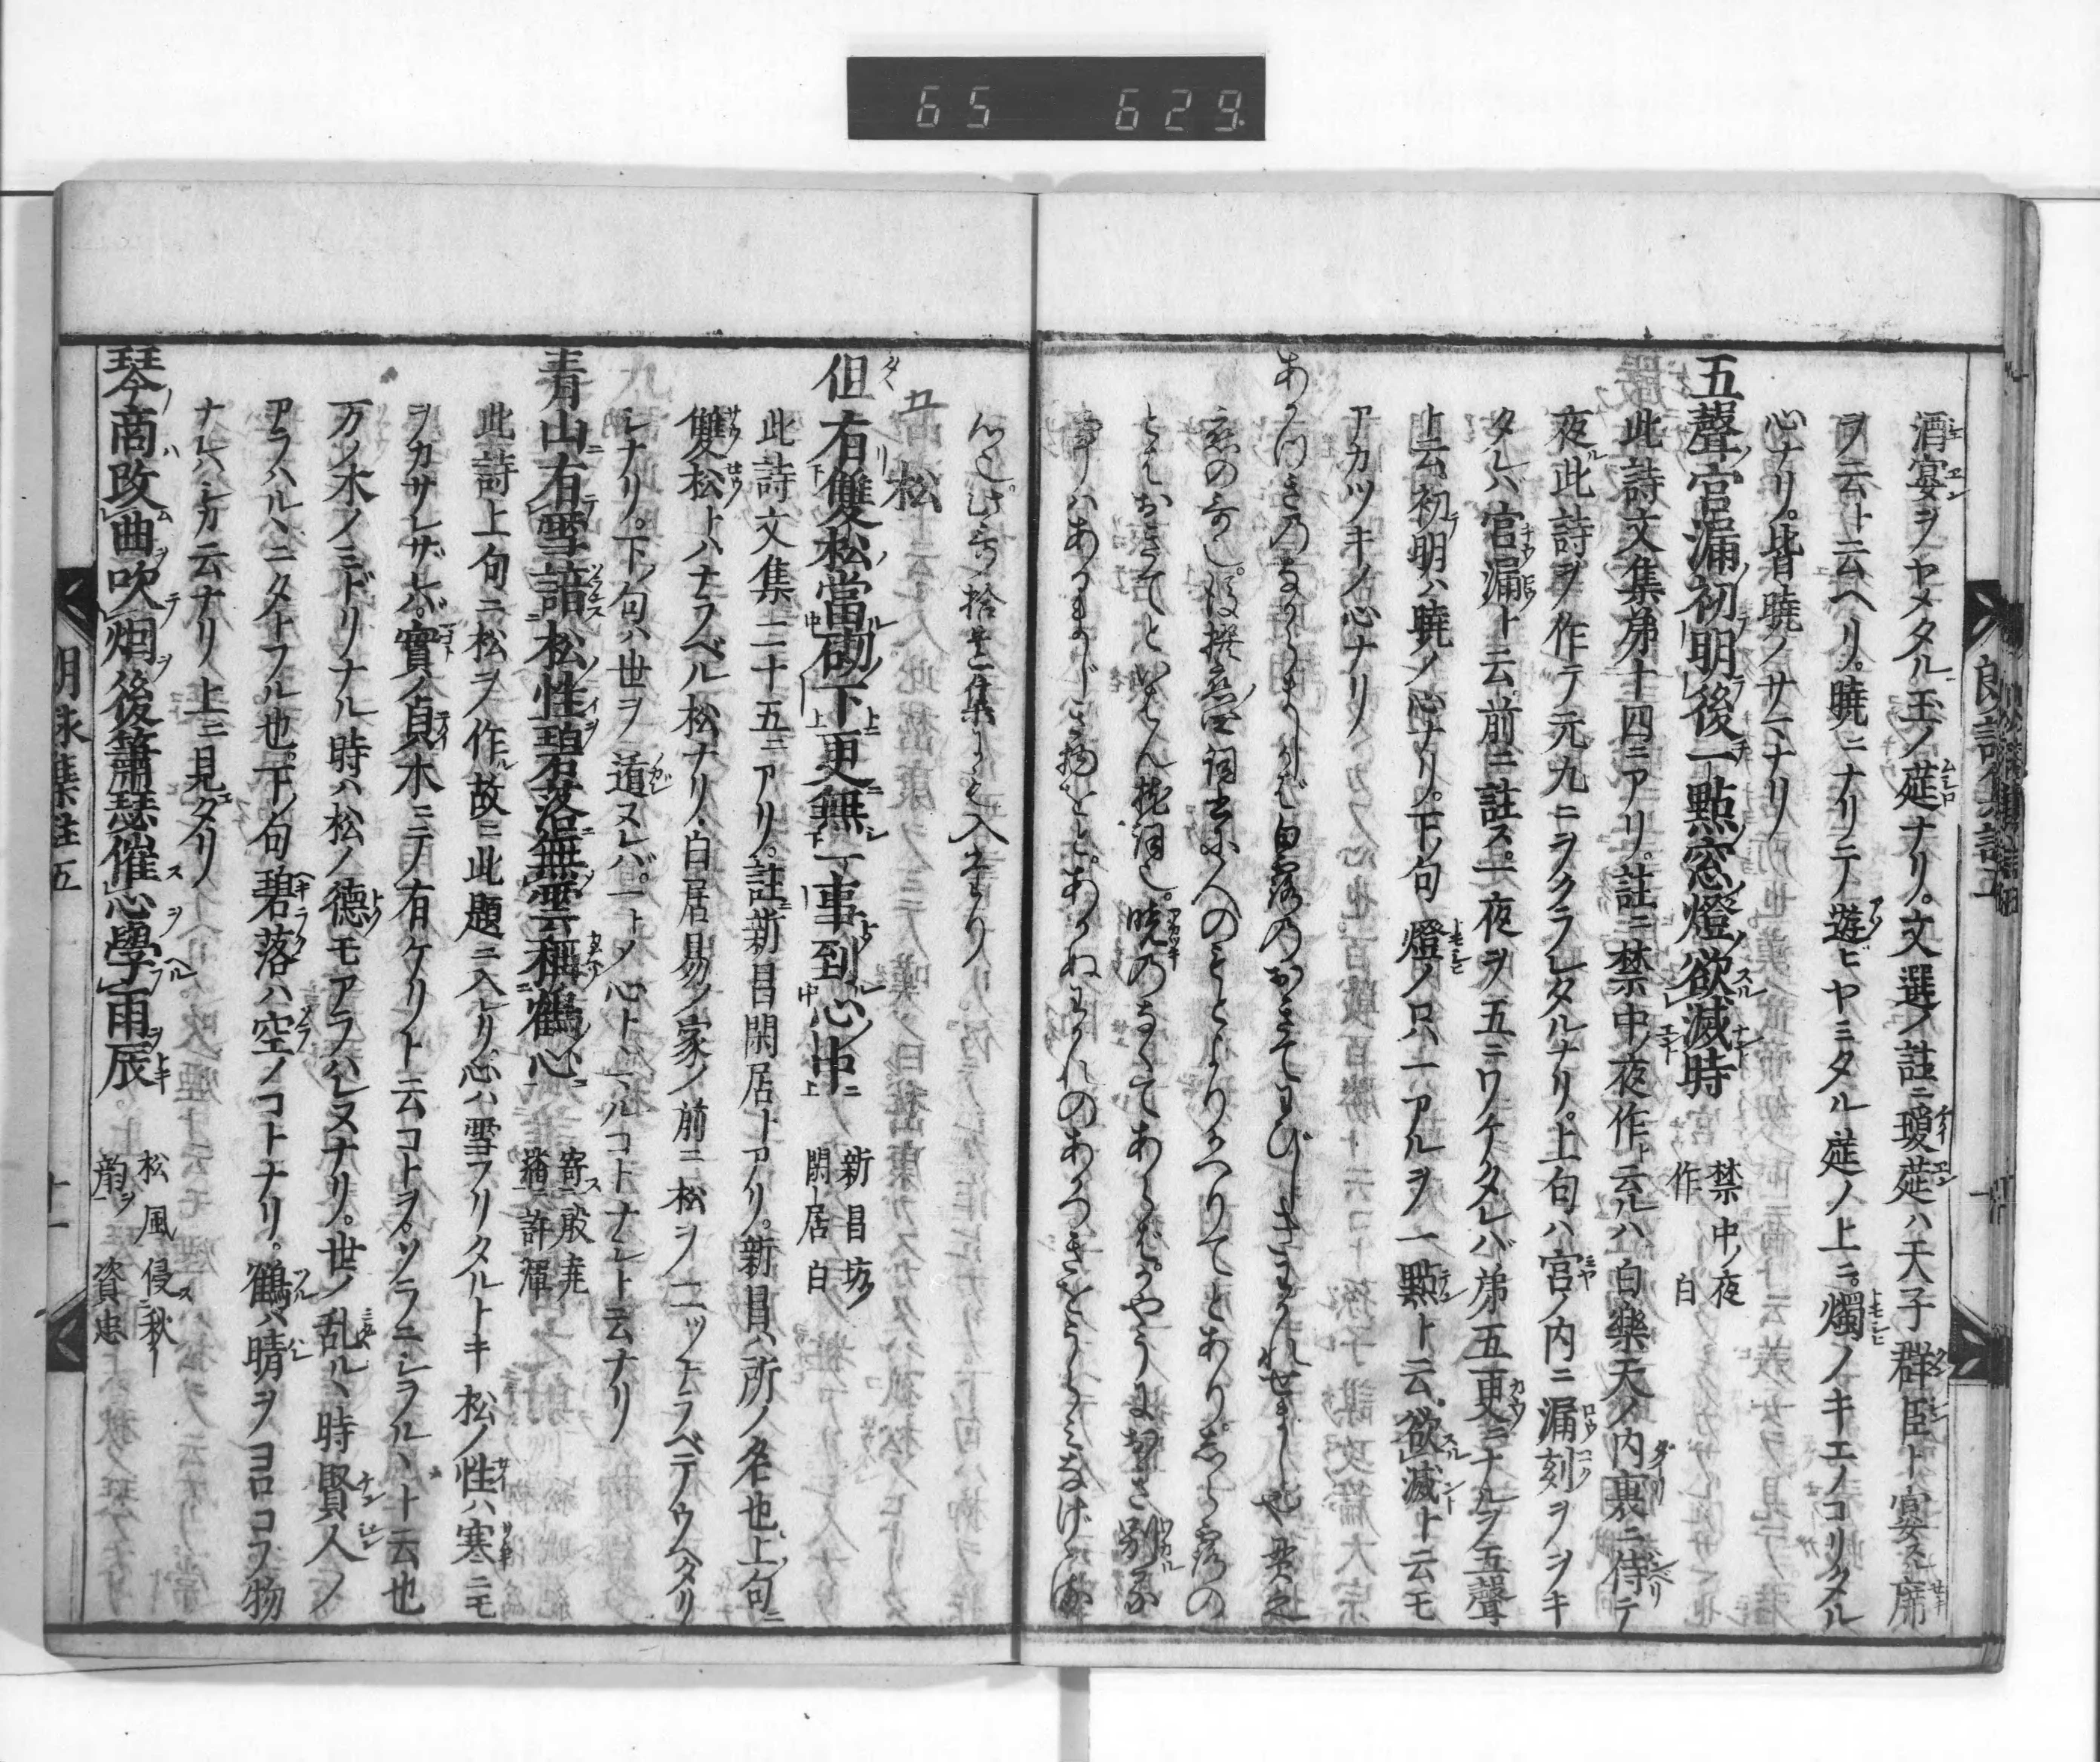 65 629.
酒宴ヲヤメタル玉ノ莚ナリ。文選ノ註ニ瓊莚ハ天子群臣ト宴スル席
ヲ云ト云ヘリ。暁ニナリテ遊ビヤミタル莚ノ上ニ。燭ノキエノコリタル
心ナリ。皆暁ノサマナリ
五聲宮漏初明後一點窓燈欲滅時 禁中ノ夜作 白
此詩文集第十四ニアリ。註ニ禁中ノ夜作ト云ルハ白樂天ノ内裏ニ侍テ
夜此詩ヲ作テ元九ニヲクラレタルナリ。上句ハ宮ノ内ニ漏刻ヲヲキ
タレバ官漏ト云。前ニ註ス。一夜ヲ五ニワケタレバ第五更ニナルヲ五聲
ト云。初明ハ暁ノ心ナリ。下句燈ノ只一アルヲ一點ト云。欲滅ト云モ
アカツキノ心ナリ
あかつきのなからましかば白露のおきてわびしきわかれせましや 貫之
恋の哥也。後撰恋四詞書に人のもとよりかへりてとあり。しら露の
とをおきてといはん枕詞也。暁のなくてあらば。かやうにおきさ別な
松
但有雙松當砌下更無一事到心中 新昌坊閑居 白
此詩文集二十五ニアリ。註新昌閑居トアリ。新昌ハ所ノ名也。上句ニ
雙松トハナラベル松ナリ。白居易ノ家ノ前ニ松ヲ二ツナラベテウヘタリ
シナリ。下ノ句ハ世ヲ遁ヌレバ。一トノ心トヽマルコトナシト云ナリ
青山有雪諳松性碧落無雲稱鶴心 寄殷尭藩 許渾
此詩上句ニ松ヲ作ル故ニ此題ニ入レリ心ハ雪フリタルトキ松ノ性ハ寒ニモ
ヲカサレザレバ。實ノ貞木ニテ有ケリト云コトヲ。ソラニシラルヽト云也
万ノ木ノミドリナル時ハ松ノ徳モアラハレヌナリ。世ノ乱ルヽ時賢人ノ
アラハルヽニタトフル也。下ノ句碧落ハ空ノコトナリ。鶴ハ晴ヲヨロコブ物
ナレバシカ云ナリ上ニ見エタリ
琴商改曲吹烟後簫瑟催心學雨辰 松風侵秋韵 資忠